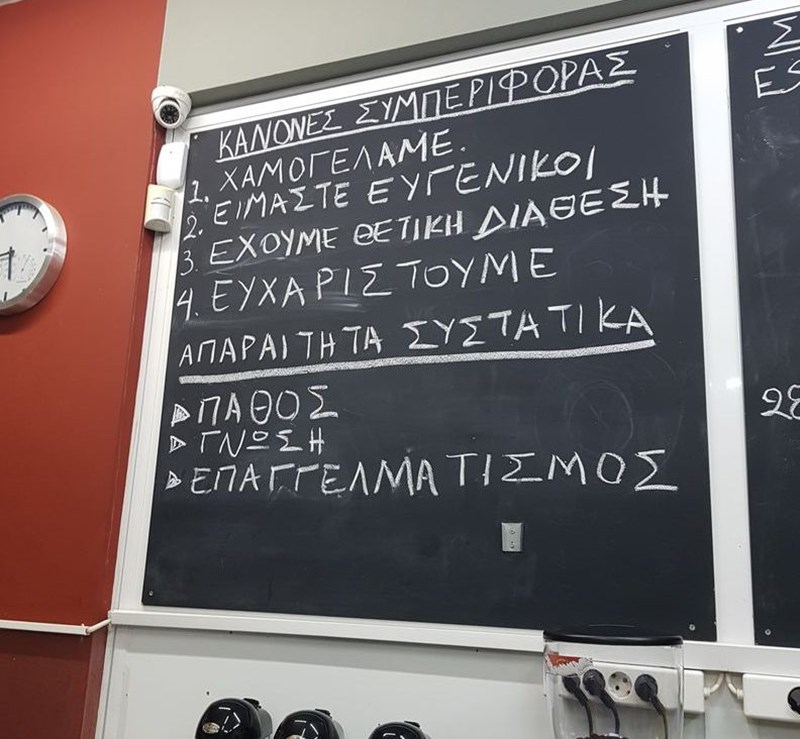 ΚΑΝΟΝΕΣ ΣΥΜΠΕΡΙΦΟΡΑΣ
1. ΧΑΜΟΓΕΛΑΜΕ.
2. ΕΙΜΑΣΤΕ ΕΥΓΕΝΙΚΟΙ
3. ΕΧΟΥΜΕ ΘΕΤΙΚΗ ΔΙΑΘΕΣΗ
4. ΕΥΧΑΡΙΣΤΟΥΜΕ
ΑΠΑΡΑΙΤΗΤΑ ΣΥΣΤΑΤΙΚΑ
ΠΑΘΟΣ
ΓΝΩΣΗ
ΕΠΑΓΓΕΛΜΑΤΙΣΜΟΣ